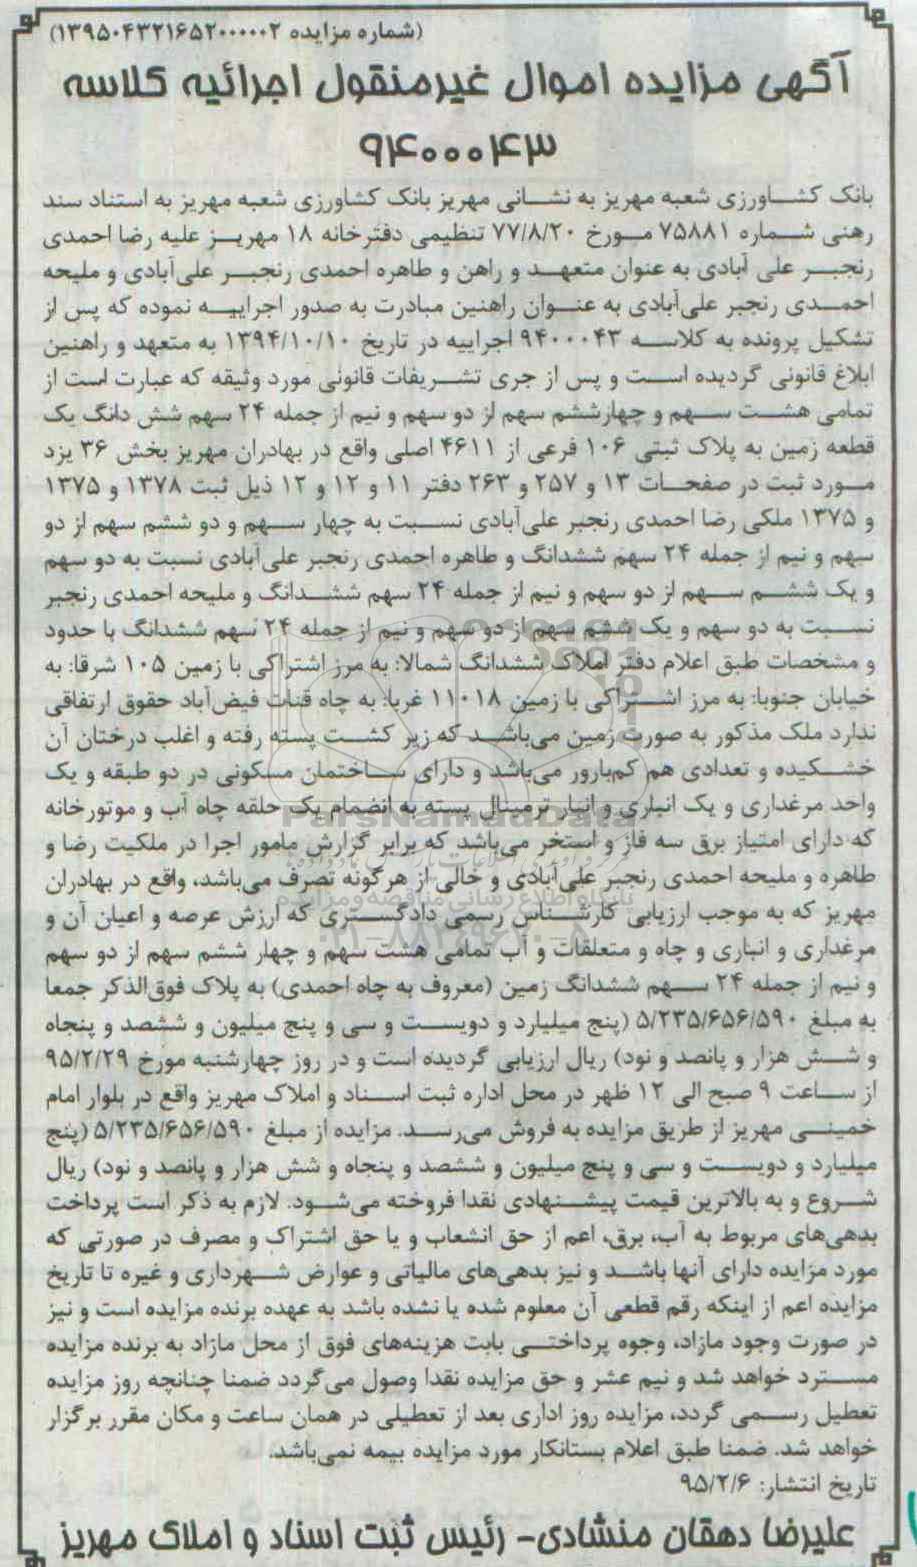 (شماره مزایده ۱۳۹۵۰۴۳۲۱۶۵۲۰۰۰۰۰۲)
آگهی مزایده اموال غیرمنقول اجرائیه کلاسه
۹۴۰۰۰۴۳
بانک کشاورزی شعبه مهریز به نشانی مهریز بانک کشاورزی شعبه مهریز به استناد سند
رهنی شماره ۷۵۸۸۱ مورخ ۷۷/۸/۲۰ تنظیمی دفترخانه ۱۸ مهریز علیه رضا احمدی
رنجبر علی آبادی به عنوان متعهد و راهن و طاهره احمدی رنجبر علی‌آبادی و ملیحه
احمدی رنجبر علی‌آبادی به عنوان راهنین مبادرت به صدور اجراییه نموده که پس از
تشکیل پرونده به کلاسه ۹۴۰۰۰۴۳ اجراییه در تاریخ ۱۳۹۴/۱۰/۱۰ به متعهد و راهنین
ابلاغ قانونی گردیده است و پس از جری تشریفات قانونی مورد وثیقه که عبارت است از
تمامی هشت سهم و چهارششم سهم از دو سهم و نیم از جمله ۲۴ سهم شش دانگ یک
قطعه زمین به پلاک ثبتی ۱۰۶ فرعی از ۴۶۱۱ اصلی واقع در بهادران مهریز بخش ۳۶ یزد
مورد ثبت در صفحات ۱۳ و ۲۵۷ و ۲۶۳ دفتر ۱۱ و ۱۲ و ۱۲ ذیل ثبت ۱۳۷۸ و ۱۳۷۵
و ۱۳۷۵ ملکی رضا احمدی رنجبر علی‌آبادی نسبت به چهار سهم و دو ششم سهم از دو
سهم و نیم از جمله ۲۴ سهم ششدانگ و طاهره احمدی رنجبر علی‌آبادی نسبت به دو سهم
و یک ششم سهم از دو سهم و نیم از جمله ۲۴ سهم ششدانگ و ملیحه احمدی رنجبر
نسبت به دو سهم و یک ششم سهم از دو سهم و نیم از جمله ۲۴ سهم ششدانگ با حدود
و مشخصات طبق اعلام دفتر املاک ششدانگ شمالا: به مرز اشتراکی با زمین ۱۰۵ شرقا: به
خیابان جنوبا: به مرز اشتراکی با زمین ۱۱۰۱۸ غربا: به چاه قنات فیض‌آباد حقوق ارتفاقی
ندارد ملک مذکور به صورت زمین می‌باشد که زیر کشت پسته رفته و اغلب درختان آن
خشکیده و تعدادی هم کم‌بارور می‌باشد و دارای ساختمان مسکونی در دو طبقه و یک
واحد مرغداری و یک انباری و انبار ترمینال پسته به انضمام یک حلقه چاه آب و موتورخانه
ParsNamadData
که دارای امتیاز برق سه فاز و استخر می‌باشد که برابر گزارش مامور اجرا در ملکیت رضا و
طاهره و ملیحه احمدی رنجبر علی‌آبادی و خالی از هرگونه تصرف می‌باشد، واقع در بهادران
پایگاه اطلاع رسانی مناقصه و مزایده
مهریز که به موجب ارزیابی کارشناس رسمی دادگستری که ارزش عرصه و اعیان آن و
مرغداری و انباری و چاه و متعلقات و آب تمامی هشت سهم و چهار ششم سهم از دو سهم
و نیم از جمله ۲۴ سهم ششدانگ زمین (معروف به چاه احمدی) به پلاک فوق‌الذکر جمعا
به مبلغ ۵/۲۳۵/۶۵۶/۵۹۰ (پنج میلیارد و دویست و سی و پنج میلیون و ششصد و پنجاه
و شش هزار و پانصد و نود) ریال ارزیابی گردیده است و در روز چهارشنبه مورخ ۹۵/۲/۲۹
از ساعت ۹ صبح الی ۱۲ ظهر در محل اداره ثبت اسناد و املاک مهریز واقع در بلوار امام
خمینی مهریز از طریق مزایده به فروش می‌رسد. مزایده از مبلغ ۵/۲۳۵/۶۵۶/۵۹۰ (پنج
میلیارد و دویست و سی و پنج میلیون و ششصد و پنجاه و شش هزار و پانصد و نود) ریال
شروع و به بالاترین قیمت پیشنهادی نقدا فروخته می‌شود. لازم به ذکر است پرداخت
بدهی‌های مربوط به آب، برق، اعم از حق انشعاب و یا حق اشتراک و مصرف در صورتی که
مورد مزایده دارای آنها باشد و نیز بدهی‌های مالیاتی و عوارض شهرداری و غیره تا تاریخ
مزایده اعم از اینکه رقم قطعی آن معلوم شده یا نشده باشد به عهده برنده مزایده است و نیز
در صورت وجود مازاد، وجوه پرداختی بابت هزینه‌های فوق از محل مازاد به برنده مزایده
مسترد خواهد شد و نیم عشر و حق مزایده نقدا وصول می‌گردد ضمنا چنانچه روز مزایده
تعطیل رسمی گردد، مزایده روز اداری بعد از تعطیلی در همان ساعت و مکان مقرر برگزار
خواهد شد. ضمنا طبق اعلام بستانکار مورد مزایده بیمه نمی‌باشد.
تاریخ انتشار: ۹۵/۲/۶
علیرضا دهقان منشادی- رئیس ثبت اسناد و املاک مهریز